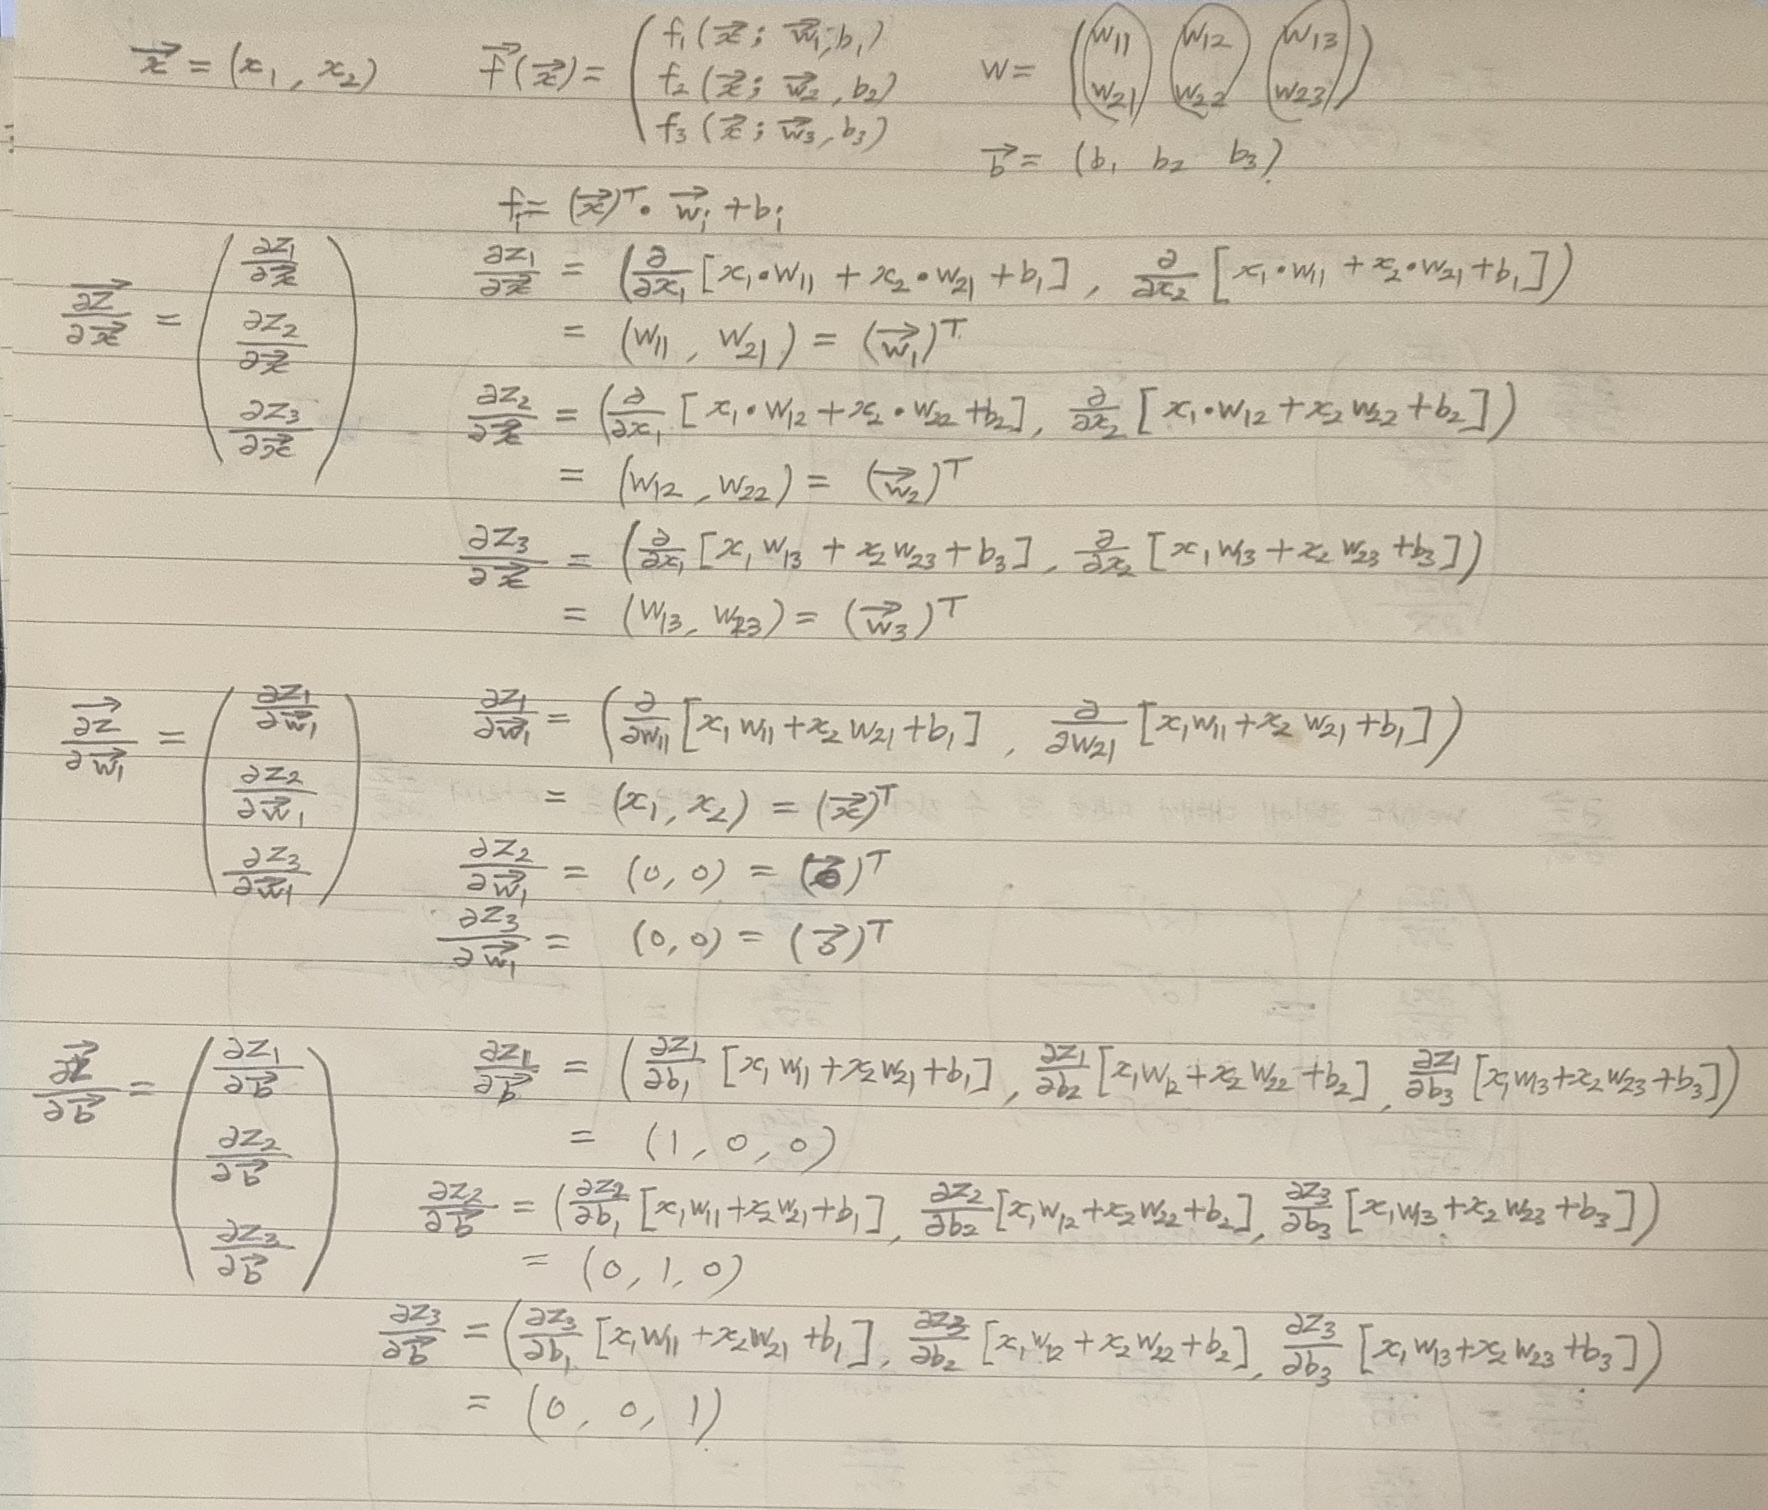 x⃗ = (x₁, x₂)   f⃗(x⃗) = ( f₁(x⃗; w⃗₁, b₁)   w = ( w₁₁ w₁₂ w₁₃
f₂(x⃗; w⃗₂, b₂)   w₂₁ w₂₂ w₂₃ )
f₃(x⃗; w⃗₃, b₃) )   b⃗ = (b₁ b₂ b₃)
fᵢ = (x⃗)ᵀ • w⃗ᵢ + bᵢ
∂z⃗/∂x⃗ = ( ∂z₁/∂x⃗ ∂z₂/∂x⃗ ∂z₃/∂x⃗ )
∂z₁/∂x⃗ = (∂/∂x₁ [x₁•w₁₁ + x₂•w₂₁ + b₁], ∂/∂x₂ [x₁•w₁₁ + x₂•w₂₁ + b₁])
= (w₁₁, w₂₁) = (w⃗₁)ᵀ
∂z₂/∂x⃗ = (∂/∂x₁ [x₁•w₁₂ + x₂•w₂₂ + b₂], ∂/∂x₂ [x₁•w₁₂ + x₂ w₂₂ + b₂])
= (w₁₂, w₂₂) = (w⃗₂)ᵀ
∂z₃/∂x⃗ = (∂/∂x₁ [x₁ w₁₃ + x₂ w₂₃ + b₃], ∂/∂x₂ [x₁ w₁₃ + x₂ w₂₃ + b₃])
= (w₁₃, w₂₃) = (w⃗₃)ᵀ
∂z⃗/∂w⃗₁ = ( ∂z₁/∂w⃗₁ ∂z₂/∂w⃗₁ ∂z₃/∂w⃗₁ )
∂z₁/∂w⃗₁ = (∂/∂w₁₁ [x₁ w₁₁ + x₂ w₂₁ + b₁], ∂/∂w₂₁ [x₁ w₁₁ + x₂ w₂₁ + b₁])
= (x₁, x₂) = (x⃗)ᵀ
∂z₂/∂w⃗₁ = (0, 0) = (0⃗)ᵀ
∂z₃/∂w⃗₁ = (0, 0) = (0⃗)ᵀ
∂z⃗/∂b⃗ = ( ∂z₁/∂b⃗ ∂z₂/∂b⃗ ∂z₃/∂b⃗ )
∂z₁/∂b⃗ = (∂z₁/∂b₁ [x₁ w₁₁ + x₂ w₂₁ + b₁], ∂z₁/∂b₂ [x₁ w₁₂ + x₂ w₂₂ + b₂], ∂z₁/∂b₃ [x₁ w₁₃ + x₂ w₂₃ + b₃])
= (1, 0, 0)
∂z₂/∂b⃗ = (∂z₂/∂b₁ [x₁ w₁₁ + x₂ w₂₁ + b₁], ∂z₂/∂b₂ [x₁ w₁₂ + x₂ w₂₂ + b₂], ∂z₃/∂b₃ [x₁ w₁₃ + x₂ w₂₃ + b₃])
= (0, 1, 0)
∂z₃/∂b⃗ = (∂z₃/∂b₁ [x₁ w₁₁ + x₂ w₂₁ + b₁], ∂z₃/∂b₂ [x₁ w₁₂ + x₂ w₂₂ + b₂], ∂z₃/∂b₃ [x₁ w₁₃ + x₂ w₂₃ + b₃])
= (0, 0, 1)